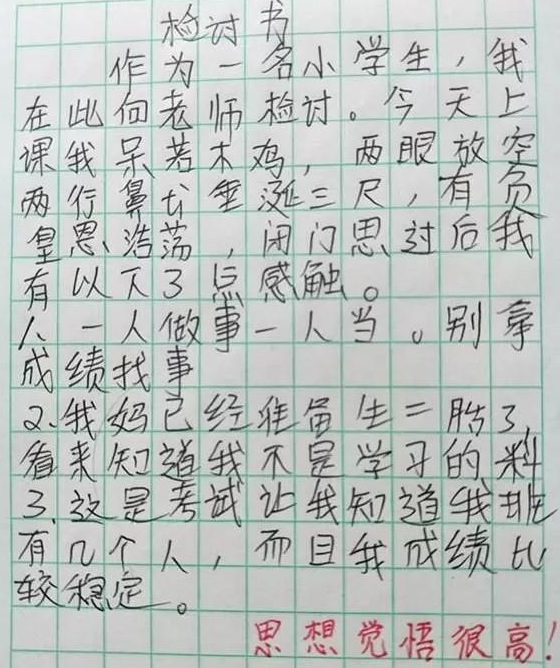 检讨书
作为一名小学生，我
在此向老师检讨。今天上
课我呆若木鸡，两眼放空
两行鼻垂涎三尺，有负
皇恩浩荡，闭门思过后我
有以下3点感触。
人一人做事一人当。别拿
成绩找事
2.我妈已经准备生二胎了，
看来知道我不是学习的料
3.这是考试让我知道我班
有几个人，而且我成绩比
较稳定。
思想觉悟很高！